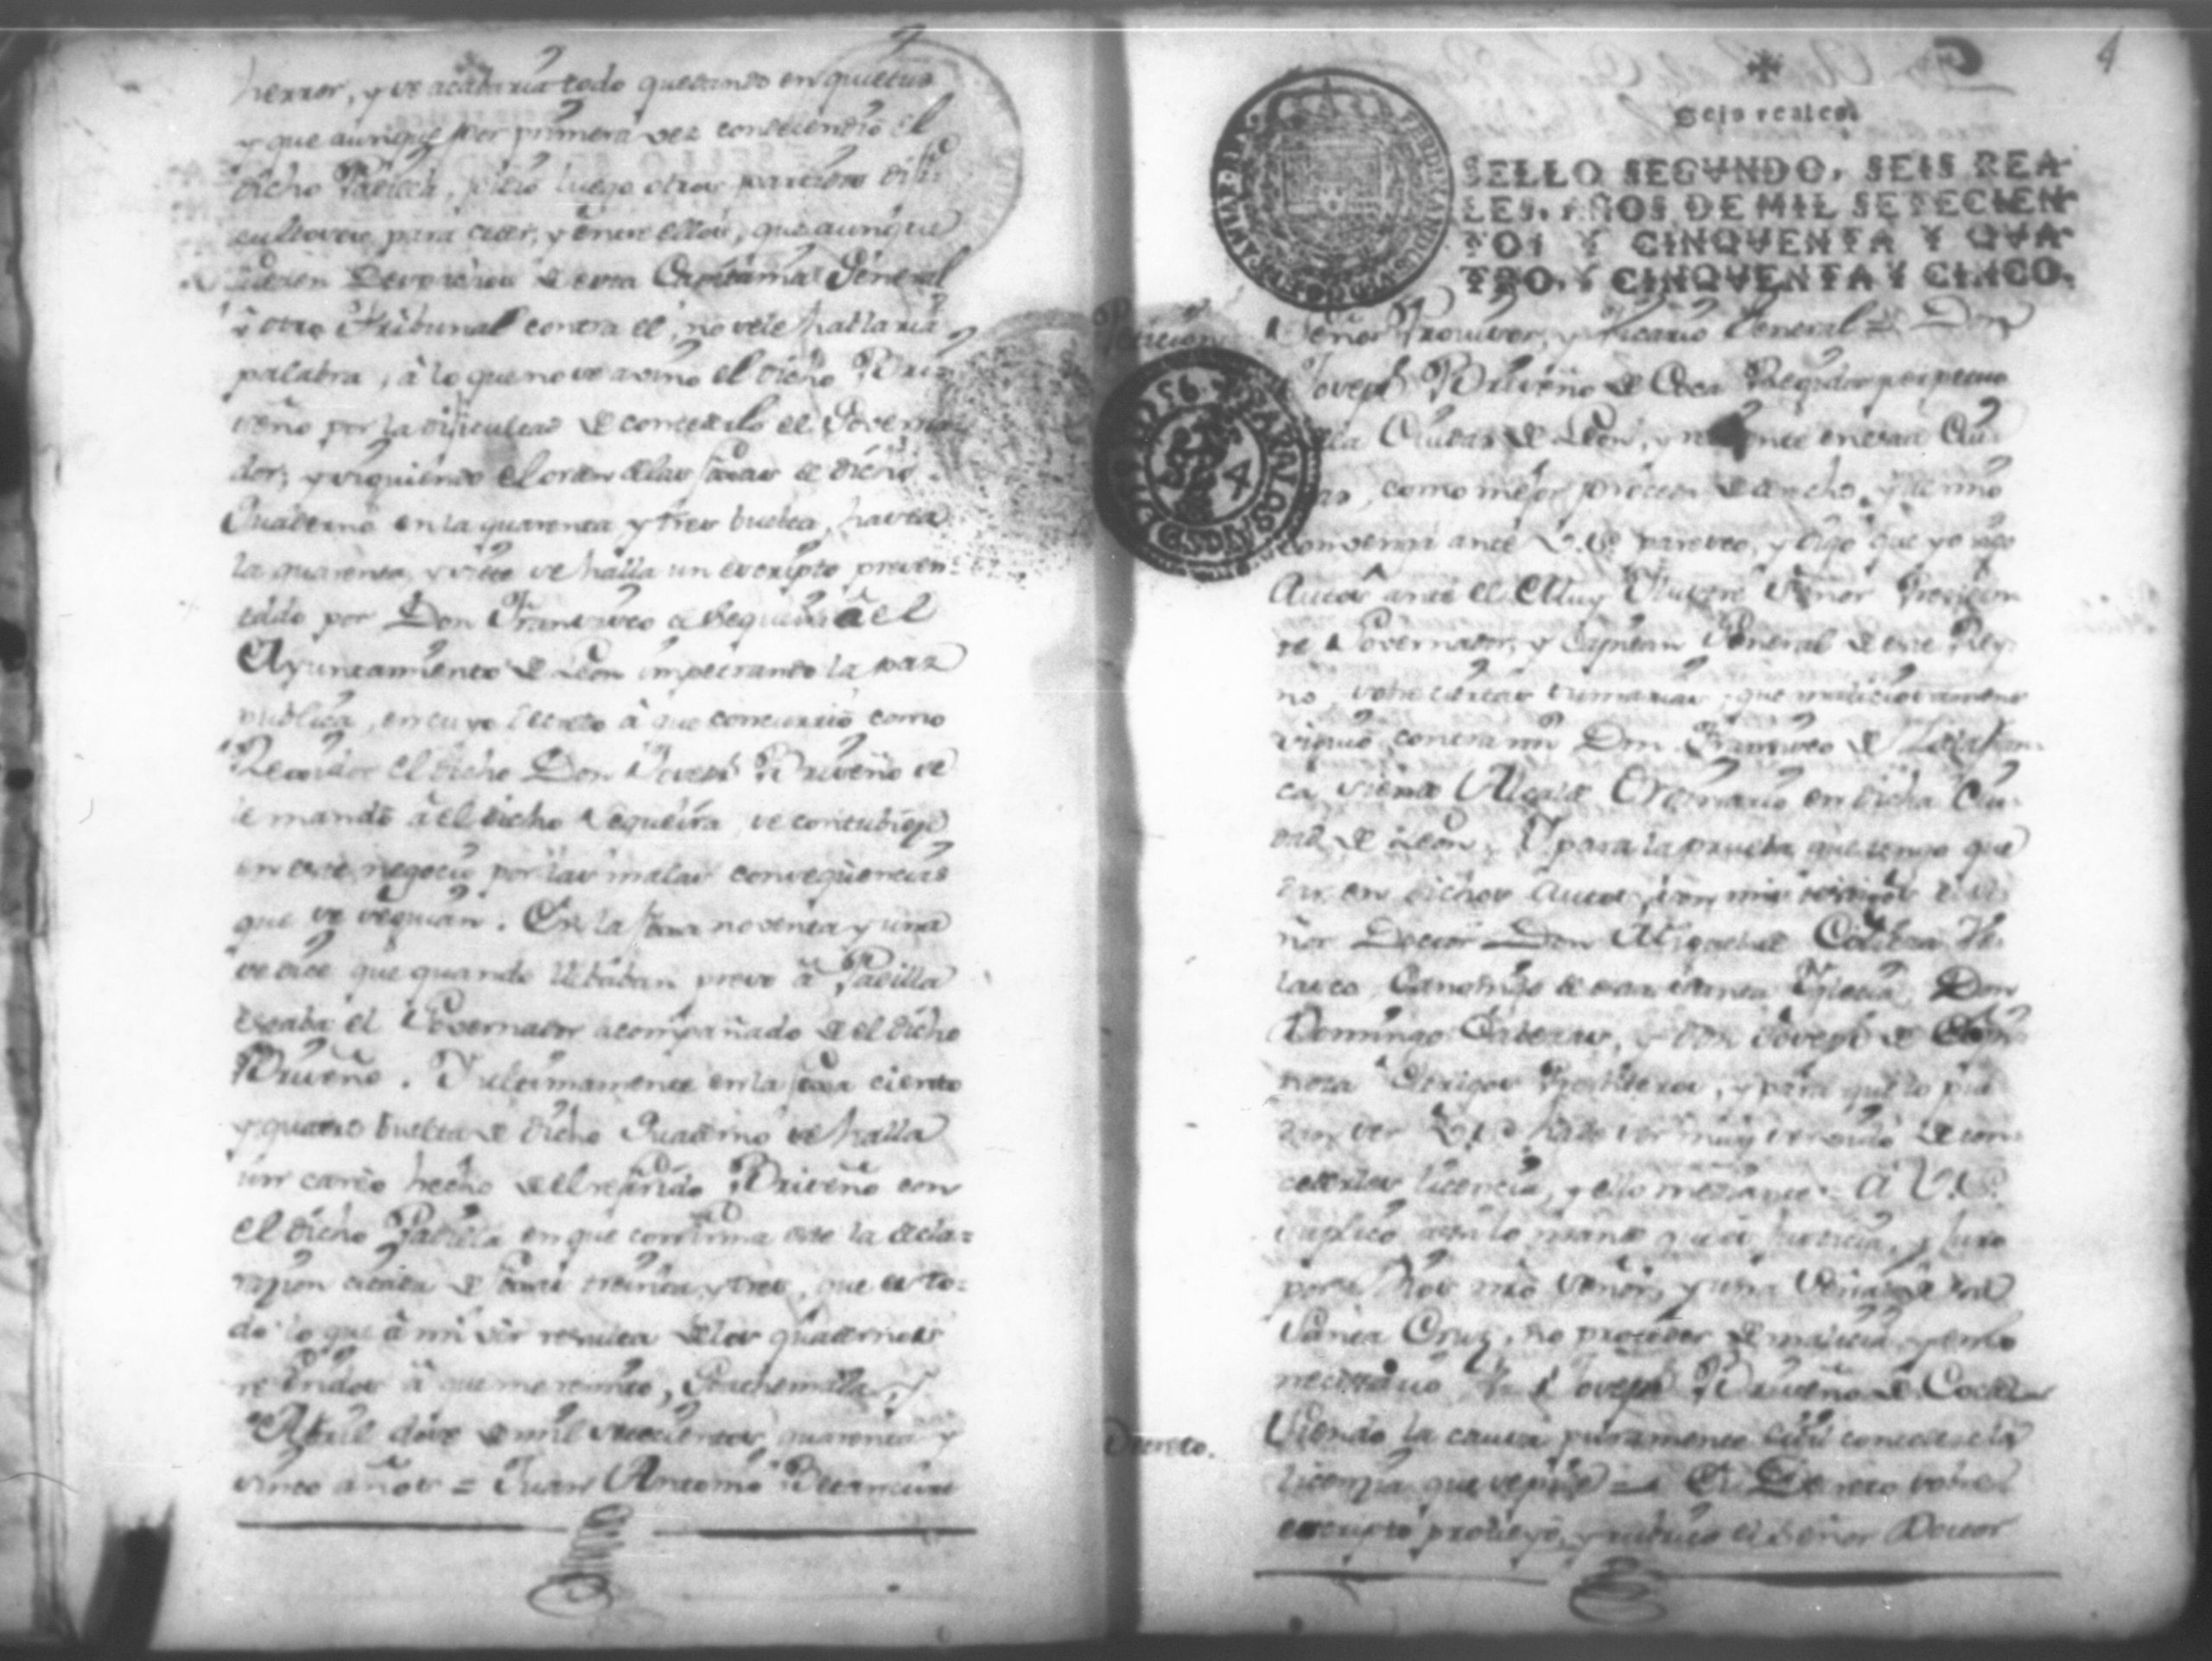 herror, y se acabaria todo quedando en quietud
y que aunque por primera vez condecendiò el
dicho Padilla, pidiò luego otros partidos
para ceder, y entre ellos, que aunque
de esta Capitania General
ù otro Tribunal contra el, no se le hablaria
palabra, à lo que no se avino el dicho Briz
veño por la dificultad de concederlo el Governa
dor, y siguiendo el orden de las foxas de dicho
Quaderno en la quarenta y tres buelta, hasta
la quarenta, y siete se halla un escripto presen-
tado por Don Francisco de Sequeira à el
Ayuntamiento de Leon impetrando la paz
publica, en cuyo Decreto à que concurriò como
Regidor el dicho Don Joseph Briseño se
le mandò à el dicho Sequeira, se contubiese
en este negocio por las malas consequencias
que se seguian. En la foxa noventa y una
se dice que quando llebaban preso à Padilla
estaba el Governador acompañado de el dicho
Briseño. Y ultimamente en la foxa ciento
y quatro buelta de dicho Quaderno se halla
un careo hecho de el referido Briseño con
el dicho Padilla en que confirma este la decla=
razion citada de foxas treinta y tres, que es to=
do lo que à mi ver resulta de los quadernos
referidos à que me remito, Goathemala, y
Abril doze de mil setecientos quarenta y
cinco años = Juan Antonio Betancurt
4
Seis reales.
SELLO SEGVNDO, SEIS REA-
LES, AÑOS DE MIL SETECIEN-
TOS Y CINQVENTA Y QVA-
TRO, Y CINQVENTA Y CINCO.
Peticion
Señor Provisor, y Vicario General = Don
Joseph Briseño de Coca Regidor perpetuo
de la Ciudad de Leon, y residente en esta Ciu-
dad, como mejor proceda de derecho, y à mi
convenga ante V.S. paresco, y digo que yo sigo
Autos ante el Muy Ilustre Señor Presiden
te Governador, y Capitan General de este Rey-
no, sobre ciertas sumarias, que maliciosamente
siguiò contra mi Don Francisco de
siendo Alcalde Ordinario en dicha Ciu-
dad de Leon. Y para la prueba que tengo que
dar en dichos Autos, son mis testigos el Se
ñor Doctor Don Miguel de Cilieza Ve-
lasco, Canonigo de esta Santa Iglesia, Don
Domingo Caberas, y Don Joseph de
Clerigos Presbiteros, y para que lo pue
dan ser V.S. ha de ser muy servido de con-
cederles licencia, y ello mediante = A V.S.
suplico assi lo mande que es justicia, y juro
por Dios mio Señor, y una Señal de
Santa Cruz, no proceder de malicia, y en lo
necesario &a. Joseph Briseño de Coca =
Decreto.
Siendo la causa puramente civil concedese la
licenzia que se pide = El Decreto sobre
escripto proveyò, y rubricò el Señor Doctor